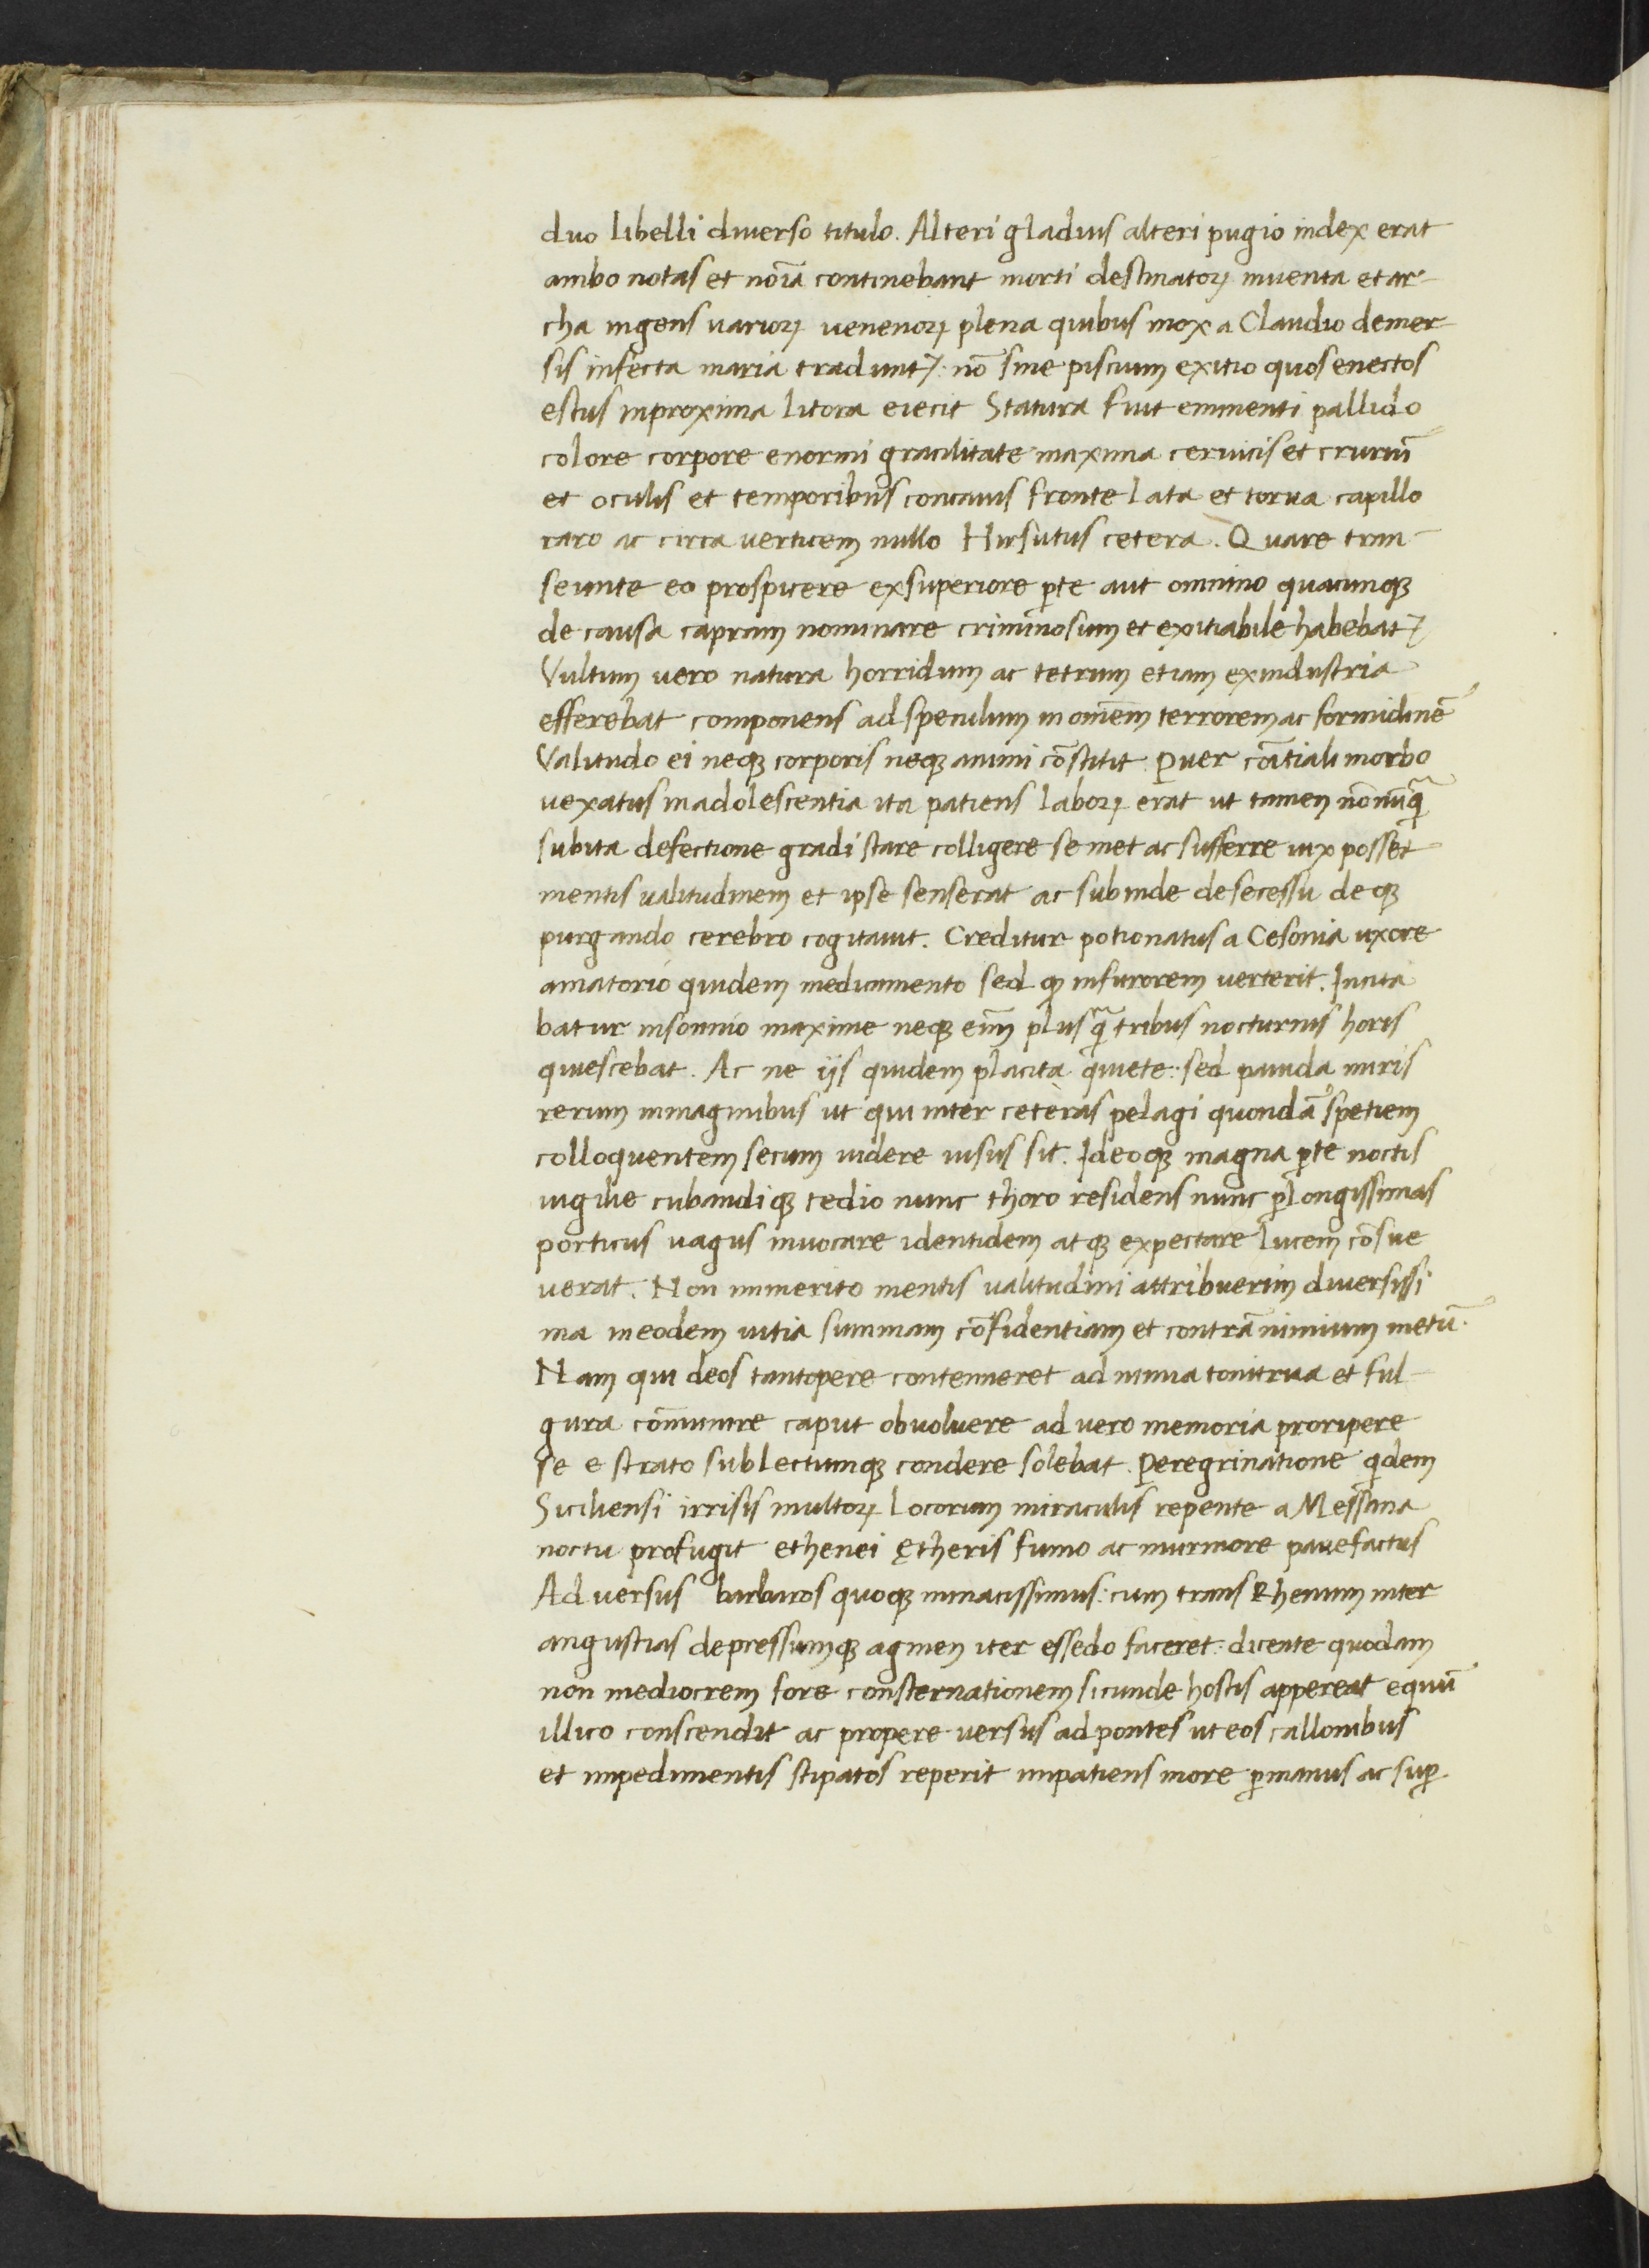 duo libelli diuerso titulo. Alteri gladius alteri pugio index erat
ambo notas et noīa continebant morti destinatoꝝ inuenta et ar-
cha ingens uarioꝝ uenenoꝝ plena quibus mox a Claudio demer
sis infecta maria tradunt᷑: nō sine piscium exitio quos enectos
estus inproxima litora eiecit Statura fuit eminenti pallido
colore corpore enormi gracilitate maxima ceruicis et cruriū
et oculis et temporibus concauis fronte lata et torua capillo
raro ac circa uerticem nullo Hirsutus cetera. Quare tran-
seunte eo prospicere exsuperiore ꝑte aut omnino quacunqꝫ
de causa capram nominare criminosum et exitiabile habebat᷑
Vultum uero natura horridum ac tetrum etiam exindustria
efferebat componens ad speculum in omēm terrorem ac formidinē
Valitudo ei neqꝫ corporis neqꝫ animi cōstitit Puer cōitiali morbo
uexatus in adolescentia ita patiens laboꝝ erat ut tamen nōnūq̄
subita defectione gradi stare colligere se met ac sufferre uix posset
mentis ualitudinem et ipse senserat ac subinde de secessu deqꝫ
purgando cerebro cogitauit. Creditur potionatus a Cesonia uxore
amatorio quidem medicamento sed qꝫ infurorem uerterit. Incita
batur insomnio maxime neqꝫ eīm plusq̄ tribus nocturnis horis
quiescebat. Ac ne ijs quidem placita quiete: sed pauida miris
rerum inmaginibus ut qui inter ceteras pelagi quondā spetiem
colloquentem secum uidere uisus sit. Ideoqꝫ magna ꝑte noctis
uigilie cubandiqꝫ tedio nunc thoro residens nunc ꝑ longissimas
porticus uagus inuocare identidem atqꝫ expectare lucem cōsue
uerat. Non inmerito mentis ualitudini attribuerim diuersissi
ma ineodem uitia summam cōfidentiam et contrā nimium metū.
Nam qui deos tantopere contemneret ad minima tonitrua et ful-
gura cōniuere caput obuoluere ad uero memoria proripere
se e strato sub lectumqꝫ condere solebat. Peregrinatione qͥdem
Siciliensi irrisis multoꝝ locorum miraculis repente a Messana
noctu profugit ethenei ętheris fumo ac murmore pauefactus
Aduersus barbaros quoqꝫ minacissimus: cum trans Rhenum inter
angustias depressumqꝫ agmen iter essedo faceret: dicente quodam
non mediocrem fore consternationem sicunde hostis appereat equū
illico conscendit ac propere uersus ad pontes ut eos callonibus
et impedimentis stipatos reperit impatiens more ꝑ manus ac suꝑ